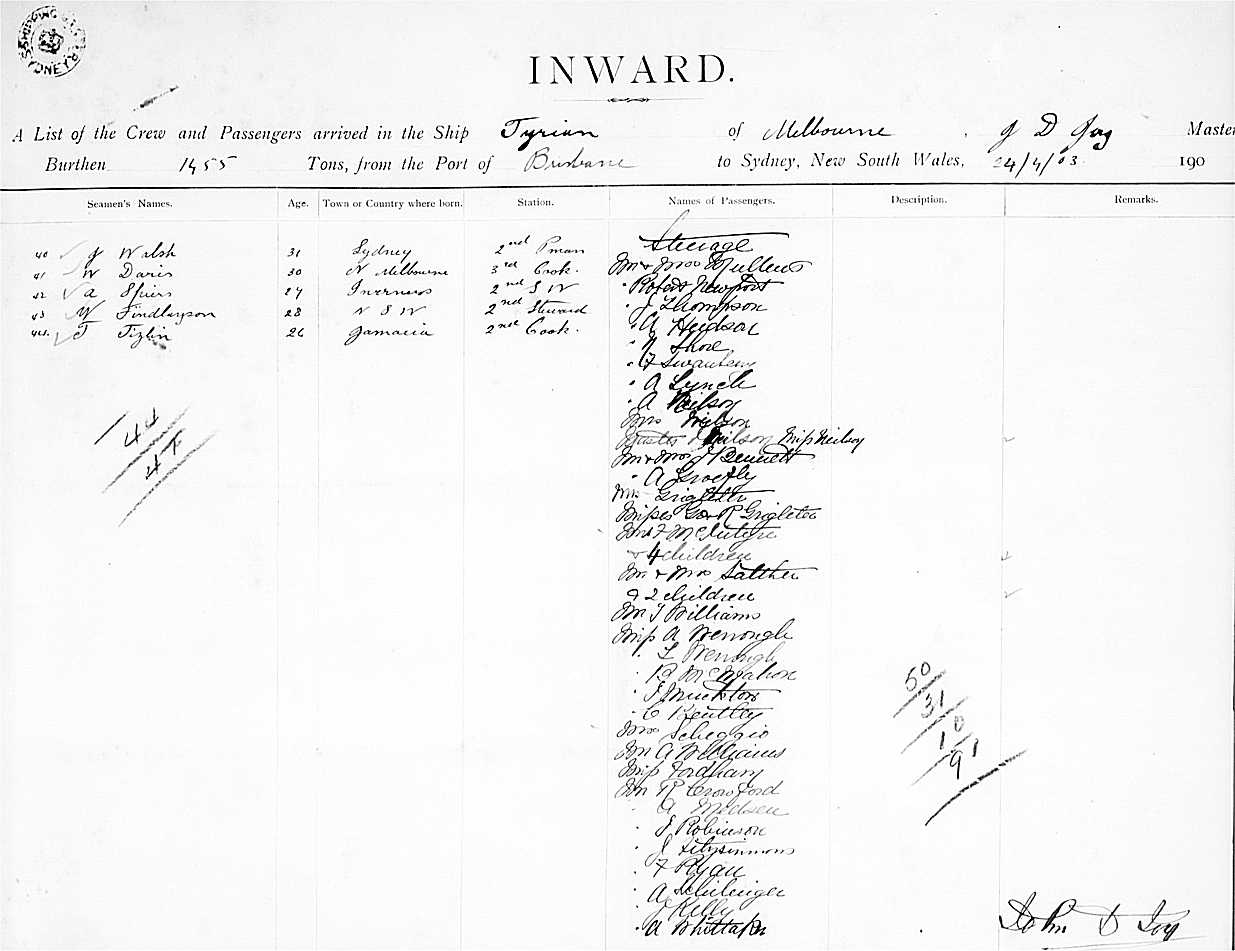 SHIPPING SYDNEY
INWARD.
A List of the Crew and Passengers arrived in the Ship Tyrian of Melbourne, J D Joy Master
Burthen 1455 Tons, from the Port of Brisbane to Sydney, New South Wales, 24/4/03 190
Seamen's Names. Age. Town or Country where born. Station. Names of Passengers. Description. Remarks.
Steerage
40 J Walsh 31 Sydney 2nd Pman Mr & Mrs Mullens
41 W Davis 30 N Melbourne 3rd Cook. Robert Newport
42 A Spiers 27 Inverness 2nd S W J Thompson
43 W Findlayson 28 N S W 2nd Steward A Hudson
44. T Tizlin 26 Jamacia 2nd Cook. Shore
F
A Lynch
A Neilson
44
47
Mrs Neilson
Master Neilson Miss Neilson 2
Mr & Mrs J Bennett
A
Mrs Grigleton
Misses G & R Grigleton
Mrs F McIntyre
& 4 children 4
Mr & Mrs Salther
& 2 children 2
Mr T Williams
Miss A Wenongh
L Wenongh
B McMahon
J Muckton
C Bentley
Mrs Scheggio
Mr A Williams
Miss Fordham
Mr R Crowford
A Medsen
J Robinson
J Fitzsimmons
F Ryan
A Schilinger
J Kelly
A Whittaker
50
31
10
91
John D Joy